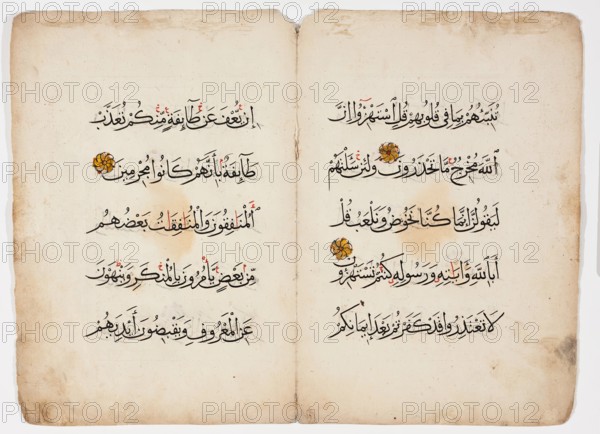 تُنَبِّئُهُمْ بِمَا فِي قُلُوبِهِمْ قُلِ اسْتَهْزِؤُا إِنَّ
اللَّهَ مُخْرِجٌ مَّا تَحْذَرُونَ وَلَئِن سَأَلْتَهُمْ
لَيَقُولُنَّ إِنَّمَا كُنَّا نَخُوضُ وَنَلْعَبُ قُلْ
أَبِاللَّهِ وَآيَاتِهِ وَرَسُولِهِ كُنْتُمْ تَسْتَهْزِؤُنَ
لَا تَعْتَذِرُوا قَدْ كَفَرْتُمْ بَعْدَ إِيمَانِكُمْ
إِنْ يُعْفَ عَنْ طَائِفَةٍ مِنْكُمْ تُعَذَّبْ
طَائِفَةٌ بِأَنَّهُمْ كَانُوا مُجْرِمِينَ
الْمُنَافِقُونَ وَالْمُنَافِقَاتُ بَعْضُهُمْ
مِنْ بَعْضٍ يَأْمُرُونَ بِالْمُنْكَرِ وَيَنْهَوْنَ
عَنِ الْمَعْرُوفِ وَيَقْبِضُونَ أَيْدِيَهُمْ
PHOTO 12